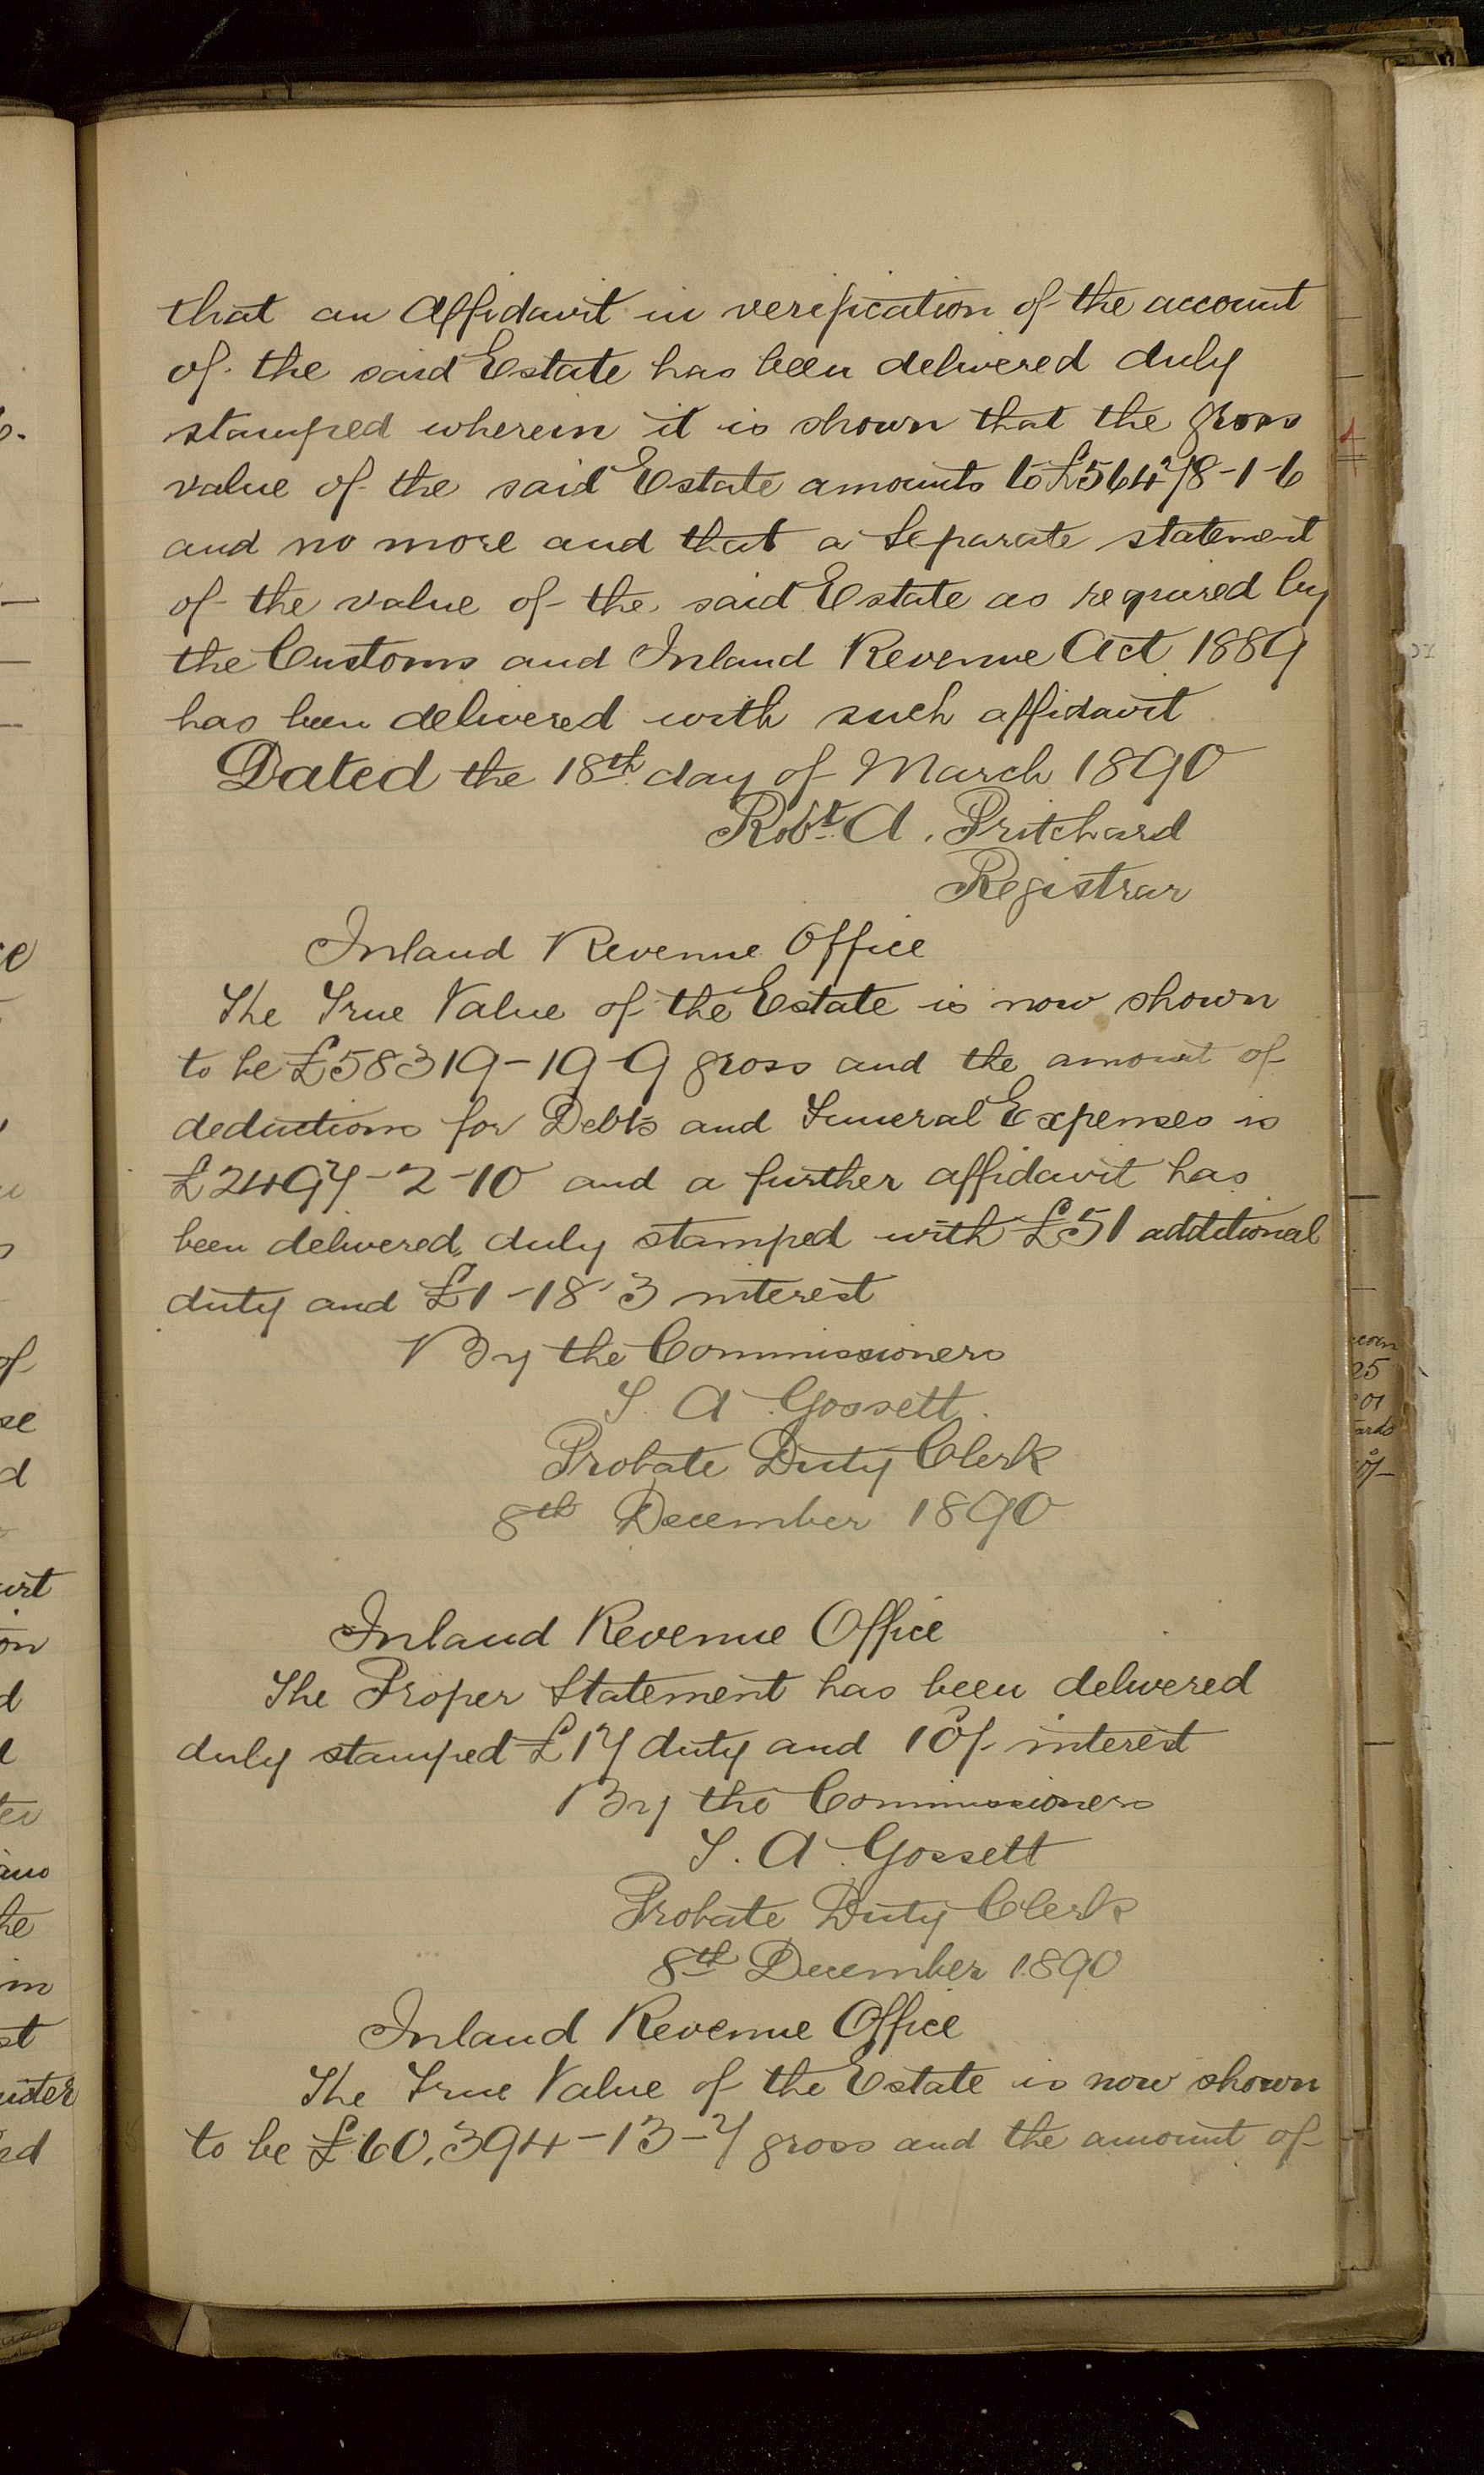 that an Affidavit in verification of the account
of the said Estate has been delivered duly
stamped wherein it is shown that the gross
value of the said Estate amounts to £56478-1-6
and no more and that a Separate statement
of the value of the said Estate as required by
the Customs and Inland Revenue Act 1889
has been delivered with such affidavit
Dated the 18th day of March 1890
Robt. A. Pritchard
Registrar
Inland Revenue Office
The True Value of the Estate is now shown
to be £58319-19-9 gross and the amount of
deductions for Debts and Funeral Expenses is
£2497-2-10 and a further affidavit has
been delivered duly stamped with £51 additional
duty and £1-18-3 interest
By the Commissioners
S. A Gossett.
Probate Duty Clerk
8th December 1890
Inland Revenue Office
The Proper Statement has been delivered
duly stamped £17 duty and 10/- interest
By the Commissioners
S. A. Gossett
Probate Duty Clerk
8th December 1890
Inland Revenue Office
The True Value of the Estate is now shown
to be £60,394-13-7 gross and the amount of